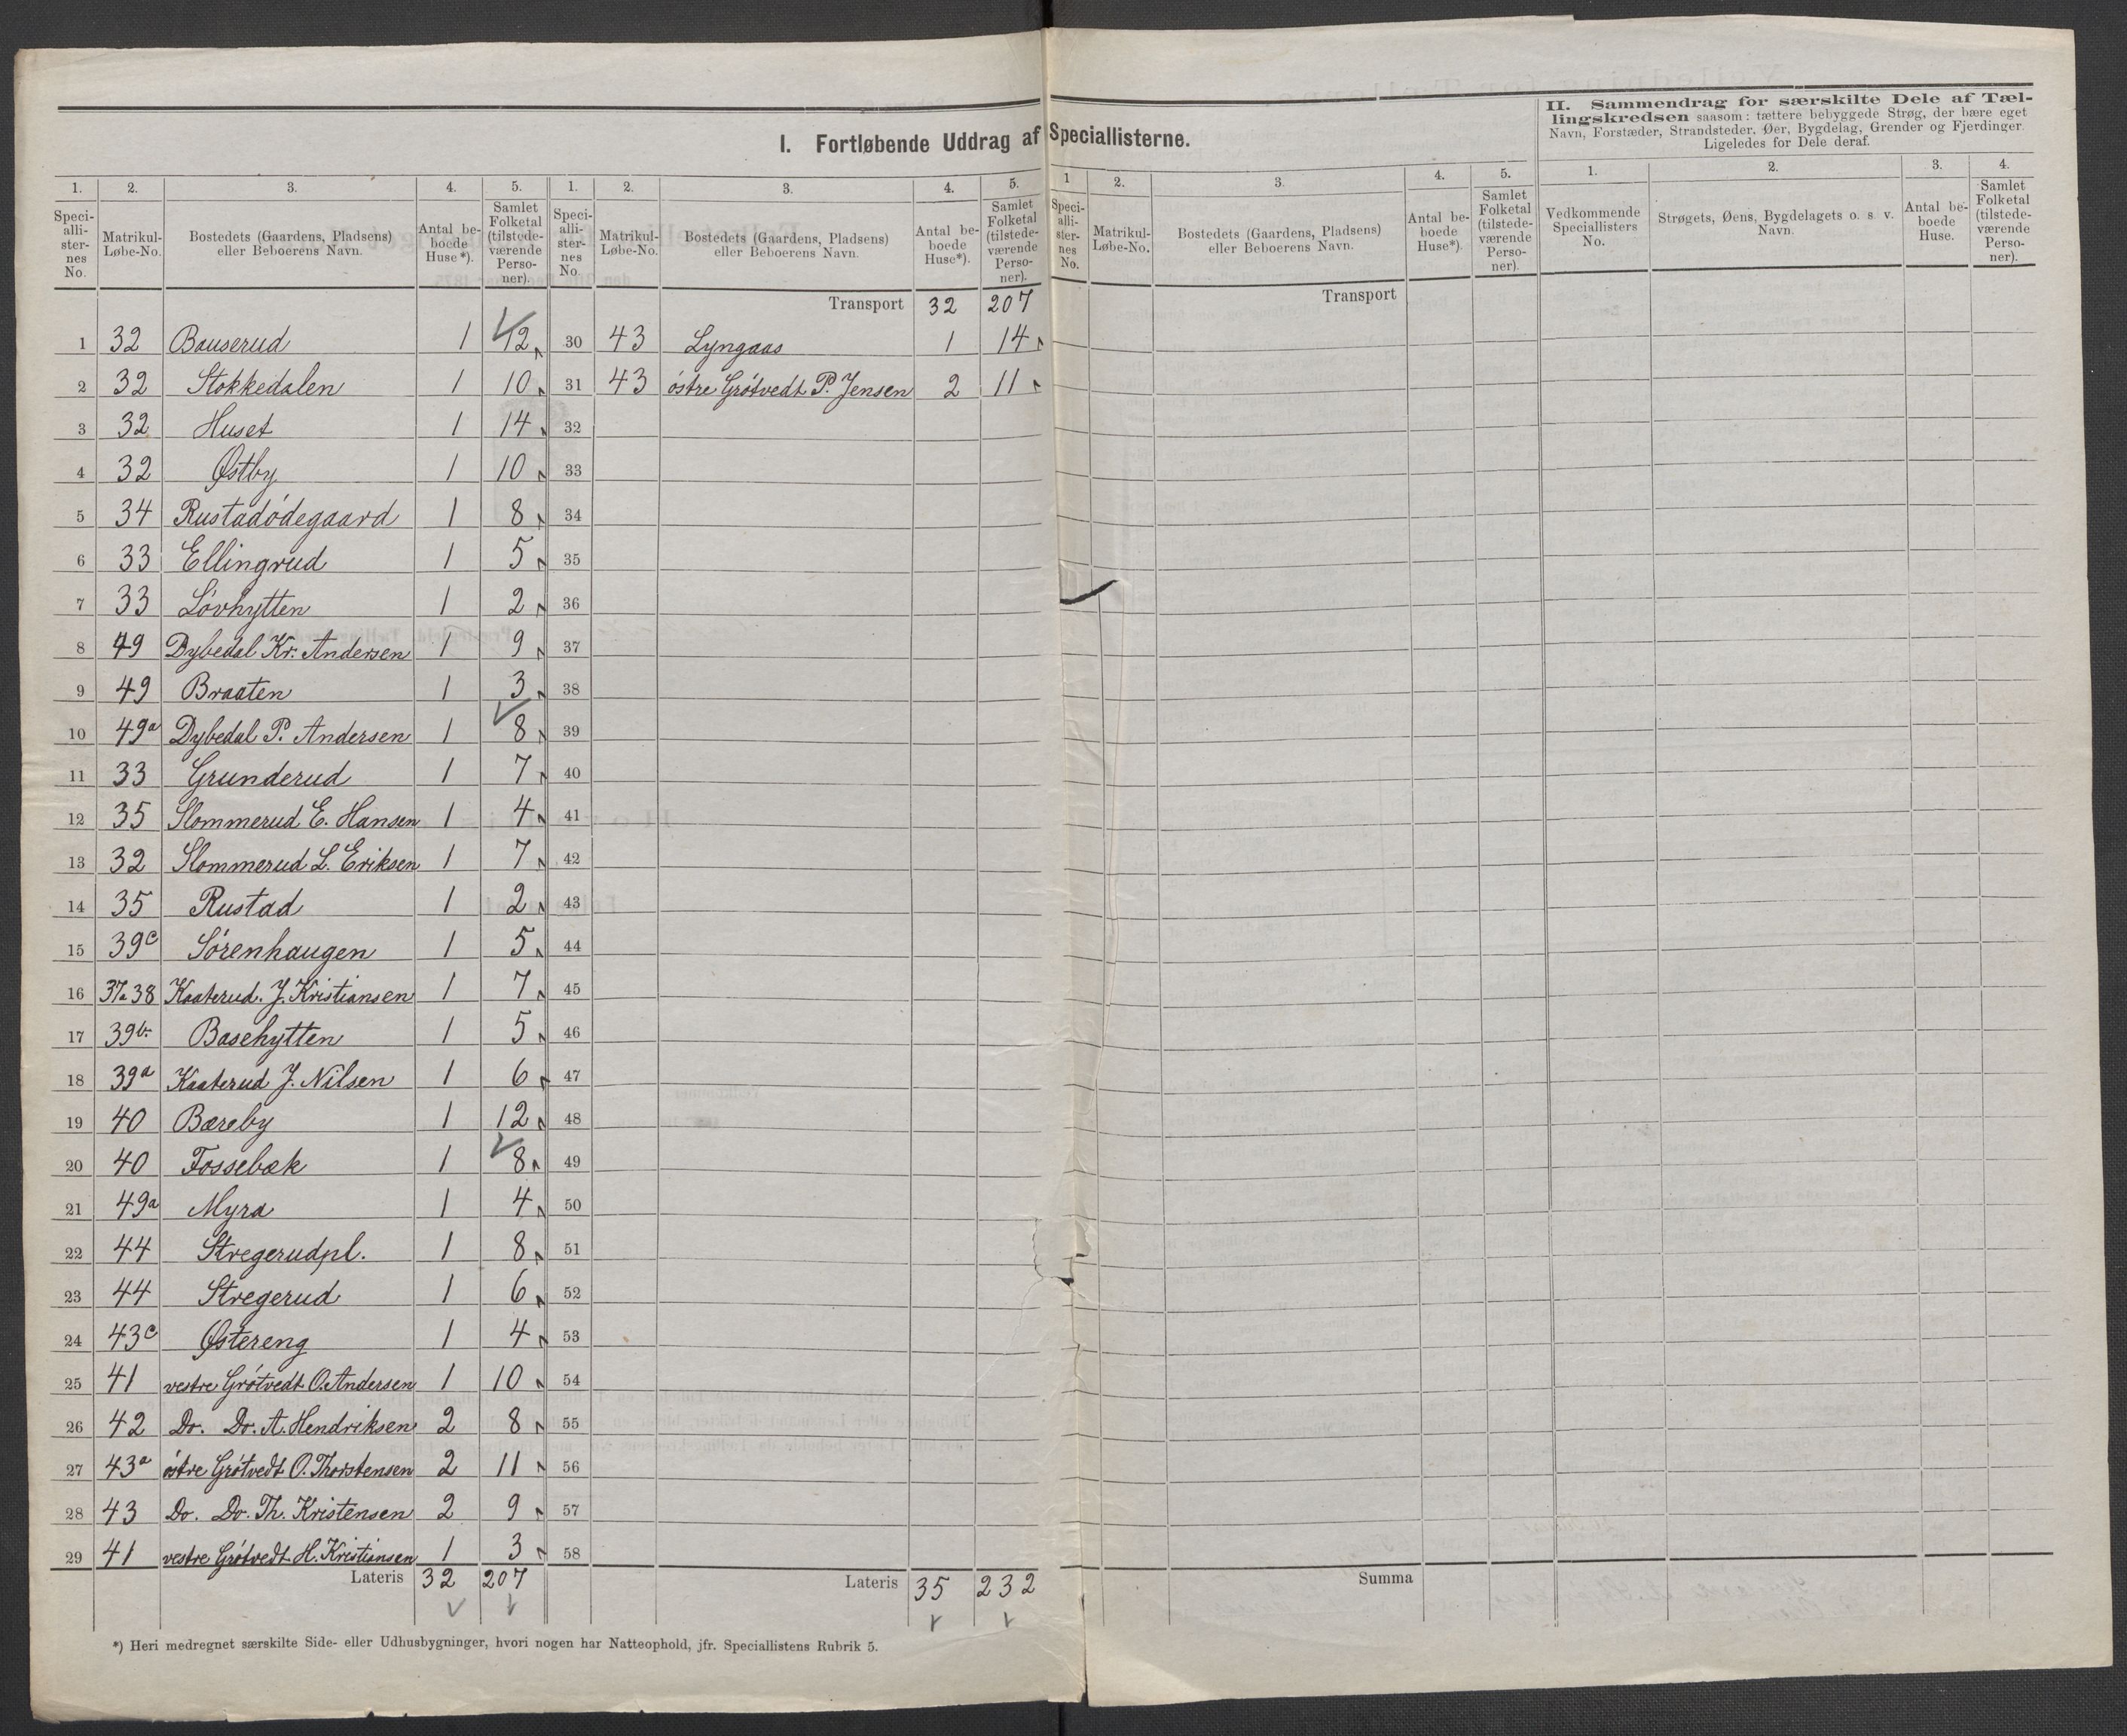 I. Fortløbende Uddrag af Speciallisterne.
II. Sammendrag for særskilte Dele af Tæl-
lingskredsen saasom: tættere bebyggede Strøg, der bære eget
Navn, Forstæder, Strandsteder, Øer, Bygdelag, Grender og Fjerdinger.
Ligeledes for Dele deraf.
1. 2. 3. 4. 5. 1. 2. 3. 4. 5. 1 2. 3. 4. 5. 1. 2. 3. 4.
Speci-
alli-
ster-
nes
No.
Matrikul-
Løbe-No.
Bostedets (Gaardens, Pladsens)
eller Beboerens Navn.
Antal be-
boede
Huse*).
Samlet
Folketal
(tilstede-
værende
Perso-
ner).
Speci-
alli-
ster-
nes
No.
Matrikul-
Løbe-No.
Bostedets (Gaardens, Pladsens)
eller Beboerens Navn.
Antal be-
boede
Huse*).
Samlet
Folketal
(tilstede-
værende
Perso-
ner).
Speci-
alli-
ster-
nes
No.
Matrikul-
Løbe-No.
Bostedets (Gaardens, Pladsens)
eller Beboerens Navn.
Antal be-
boede
Huse*).
Samlet
Folketal
(tilstede-
værende
Perso-
ner).
Vedkommende
Speciallisters
No.
Strøgets, Øens, Bygdelagets o. s. v.
Navn.
Antal be-
boede
Huse.
Samlet
Folketal
(tilstede-
værende
Perso-
ner).
Transport 32 207 Transport
1 32 Bauserud 1 12 30 43 Lyngaas 1 14
2 32 Stokkedalen 1 10 31 43 østre Grøtvedt P. Jensen 2 11
3 32 Huset 1 14 32
4 32 Østby 1 10 33
5 34 Rustadødegaard 1 8 34
6 33 Ellingrud 1 5 35
7 33 Løvhytten 1 2 36
8 49 Dybedal Kr. Andersen 1 9 37
9 49 Braaten 1 3 38
10 49a Dybedal P. Andersen 1 8 39
11 33 Grunderud 1 7 40
12 35 Slommerud E. Hansen 1 4 41
13 32 Slommerud L. Eriksen 1 7 42
14 35 Rustad 1 2 43
15 39c Sørenhaugen 1 5 44
16 37a 38 Kaaterud. J. Kristiansen 1 7 45
17 39b. Basehytten 1 5 46
18 39a Kaaterud J. Nilsen 1 6 47
19 40 Bæreby 1 12 48
20 40 Fossebæk 1 8 49
21 49a Myra 1 4 50
22 44 Stregerudpl. 1 8 51
23 44 Stregerud 1 6 52
24 43c Østereng 1 4 53
25 41 vestre Grøtvedt O. Andersen 1 10 54
26 42 Do. Do. A. Hendriksen 2 8 55
27 43a østre Grøtvedt O. Thorstensen 2 11 56
28 43 Do. Do. Th. Kristensen 2 9 57
29 41 vestre Grøtvedt H. Kristiansen 1 3 58
Lateris 32 207 Lateris 35 232 Summa
*) Heri medregnet særskilte Side- eller Udhusbygninger, hvori nogen har Natteophold, jfr. Speciallistens Rubrik 5.